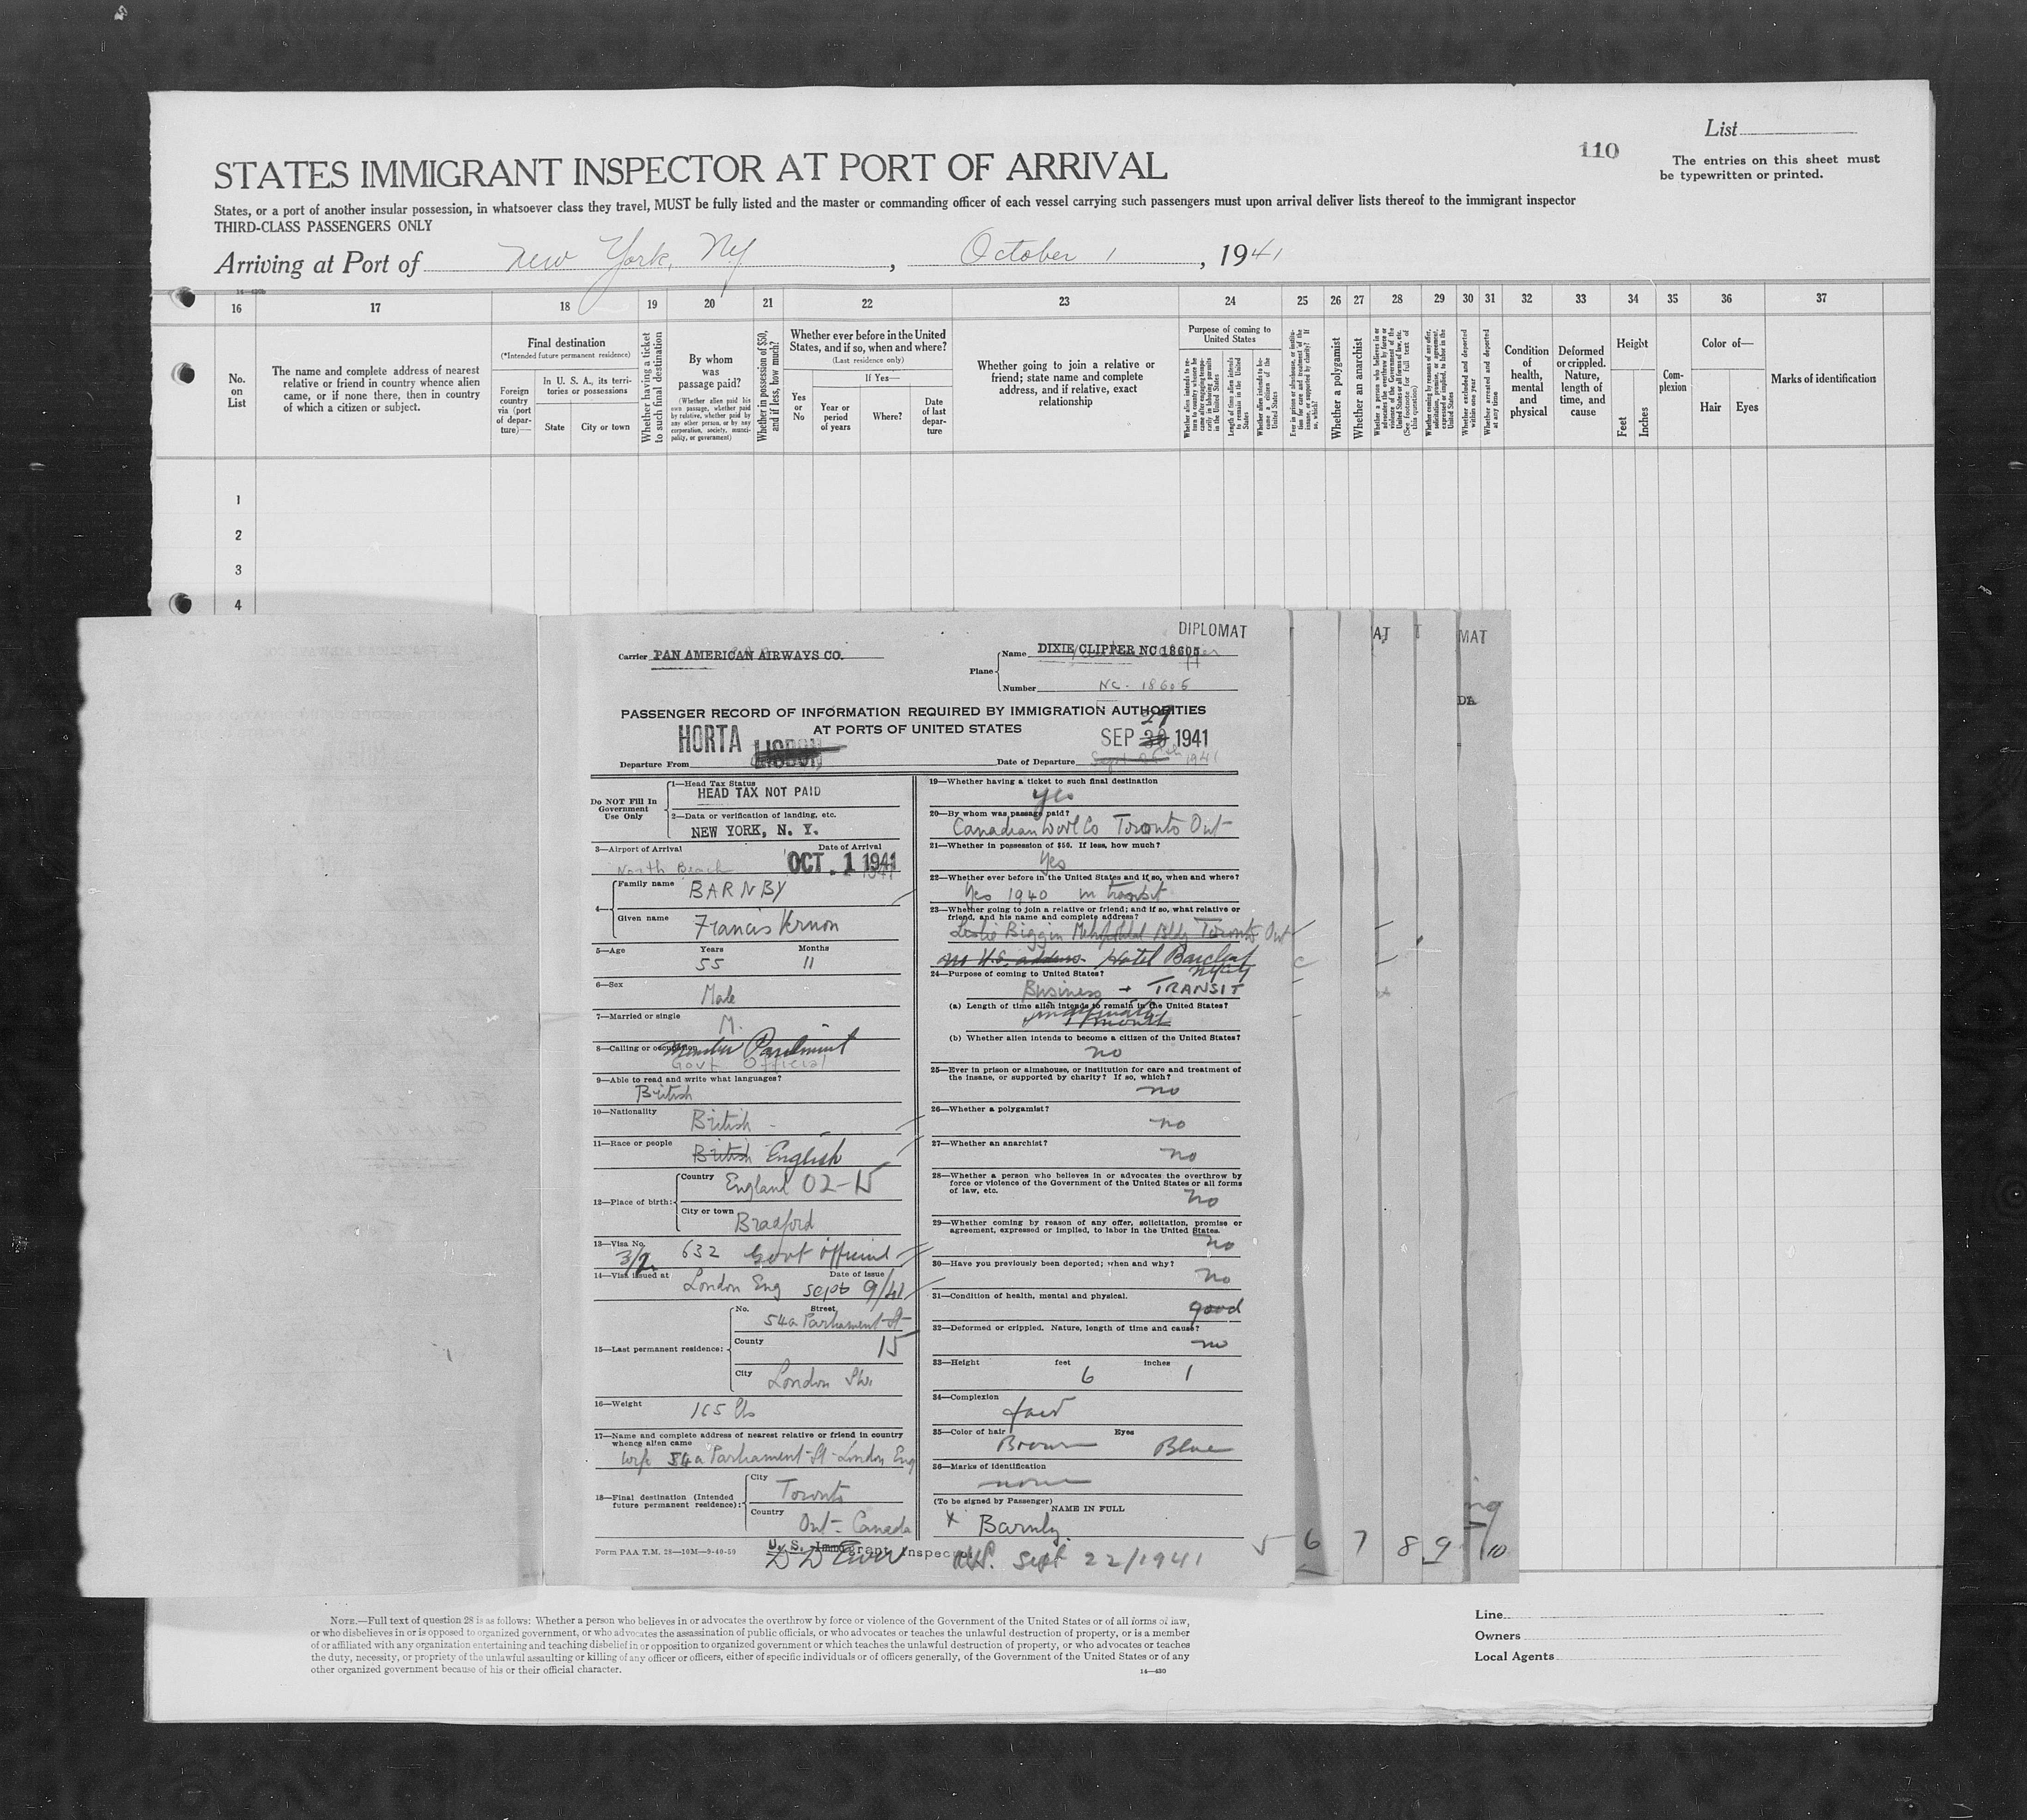 List
110
The entries on this sheet must
be typewritten or printed.
STATES IMMIGRANT INSPECTOR AT PORT OF ARRIVAL
States, or a port of another insular possession, in whatsoever class they travel, MUST be fully listed and the master or commanding officer of each vessel carrying such passengers must upon arrival deliver lists thereof to the immigrant inspector
THIRD-CLASS PASSENGERS ONLY
Arriving at Port of New York, NY, October 1, 1941
16 17 18 19 20 21 22 23 24 25 26 27 28 29 30 31 32 33 34 35 36 37
No. on List
The name and complete address of nearest
relative or friend in country whence alien
came, or if none there, then in country
of which a citizen or subject.
Final destination
(*Intended future permanent residence)
Foreign
country
via (port
of depar-
ture)—
In U. S. A., its terri-
tories or possessions
State
City or town
Whether having a ticket
to such final destination
By whom
was
passage paid?
(Whether alien paid his
own passage, whether paid
by relative, whether paid by
any other person, or by any
corporation, society, munici-
pality, or government)
Whether in possession of $50,
and if less, how much?
Whether ever before in the United
States, and if so, when and where?
(Last residence only)
Yes
or
No
If Yes—
Year or
period
of years
Where?
Date
of last
depar-
ture
Whether going to join a relative or
friend; state name and complete
address, and if relative, exact
relationship
Purpose of coming to
United States
Length of time alien intends
to remain in the United
States
Whether a polygamist
Whether an anarchist
Whether excluded and deported
within one year
Whether arrested and deported
at any time
Condition
of
health,
mental
and
physical
Deformed
or crippled.
Nature,
length of
time, and
cause
Height
Feet
Inches
Com-
plexion
Color of—
Hair
Eyes
Marks of identification
1
2
3
4
DIPLOMAT
AT
MAT
Carrier PAN AMERICAN AIRWAYS CO.
Plane
Name DIXIE CLIPPER NC 18605
Number NC-18605
PASSENGER RECORD OF INFORMATION REQUIRED BY IMMIGRATION AUTHORITIES
AT PORTS OF UNITED STATES
HORTA LISBON
27
SEP 30 1941
Departure From
Date of Departure
Do NOT Fill In
Government
Use Only
1—Head Tax Status
HEAD TAX NOT PAID
2—Data or verification of landing, etc.
NEW YORK, N. Y.
3—Airport of Arrival
North Beach
Date of Arrival
OCT. 1 1941
4—
Family name BARNBY
Given name Francis Vernon
5—Age
Years 55
Months 11
6—Sex
Male
7—Married or single
M.
8—Calling or occupation
Member Parliment
Govt Official
9—Able to read and write what languages?
British
10—Nationality
British -
11—Race or people
British English
12—Place of birth:
Country England 02-15
City or town Bradford
13—Visa No.
3/2 632 Govt official
14—Visa issued at London Eng
Date of issue sept 9/41
15—Last permanent residence:
No. Street
54a Parliament St
County 15
City London
16—Weight 165 lbs
17—Name and complete address of nearest relative or friend in country
whence alien came
Wife 54a Parliament St London Eng
18—Final destination (Intended
future permanent residence):
City Toronto
Country Ont- Canada
Form PAA T.M. 28—10M—9-40-50
U. S. Immigrant Inspector
19—Whether having a ticket to such final destination
yes
20—By whom was passage paid?
Canadian Wool Co Toronto Ont
21—Whether in possession of $50. If less, how much?
Yes
22—Whether ever before in the United States and if so, when and where?
Yes 1940 in transit
23—Whether going to join a relative or friend; and if so, what relative or
friend, and his name and complete address?
Leslie Biggin Metropolitan Bldg Toronto Ont
no U.S. address Hotel Barclay
NYCity
24—Purpose of coming to United States?
Business + TRANSIT
(a) Length of time alien intends to remain in the United States?
indefinite
1 month
(b) Whether alien intends to become a citizen of the United States?
no
25—Ever in prison or almshouse, or institution for care and treatment of
the insane, or supported by charity? If so, which?
no
26—Whether a polygamist?
no
27—Whether an anarchist?
no
28—Whether a person who believes in or advocates the overthrow by
force or violence of the Government of the United States or all forms
of law, etc.
no
29—Whether coming by reason of any offer, solicitation, promise or
agreement, expressed or implied, to labor in the United States.
no
30—Have you previously been deported; when and why?
no
31—Condition of health, mental and physical.
good
32—Deformed or crippled. Nature, length of time and cause?
no
33—Height feet 6 inches 1
34—Complexion
fair
35—Color of hair Brown
Eyes Blue
36—Marks of identification
none
(To be signed by Passenger)
NAME IN FULL
x Barnby.
Sept 22/1941
5 6 7 8 9 10
NOTE.—Full text of question 28 is as follows: Whether a person who believes in or advocates the overthrow by force or violence of the Government of the United States or of all forms of law,
or who disbelieves in or is opposed to organized government, or who advocates the assassination of public officials, or who advocates or teaches the unlawful destruction of property, or is a member
of or affiliated with any organization entertaining and teaching disbelief in or opposition to organized government or which teaches the unlawful destruction of property, or who advocates or teaches
the duty, necessity, or propriety of the unlawful assaulting or killing of any officer or officers, either of specific individuals or of officers generally, of the Government of the United States or of any
other organized government because of his or their official character.
14—430
Line
Owners
Local Agents